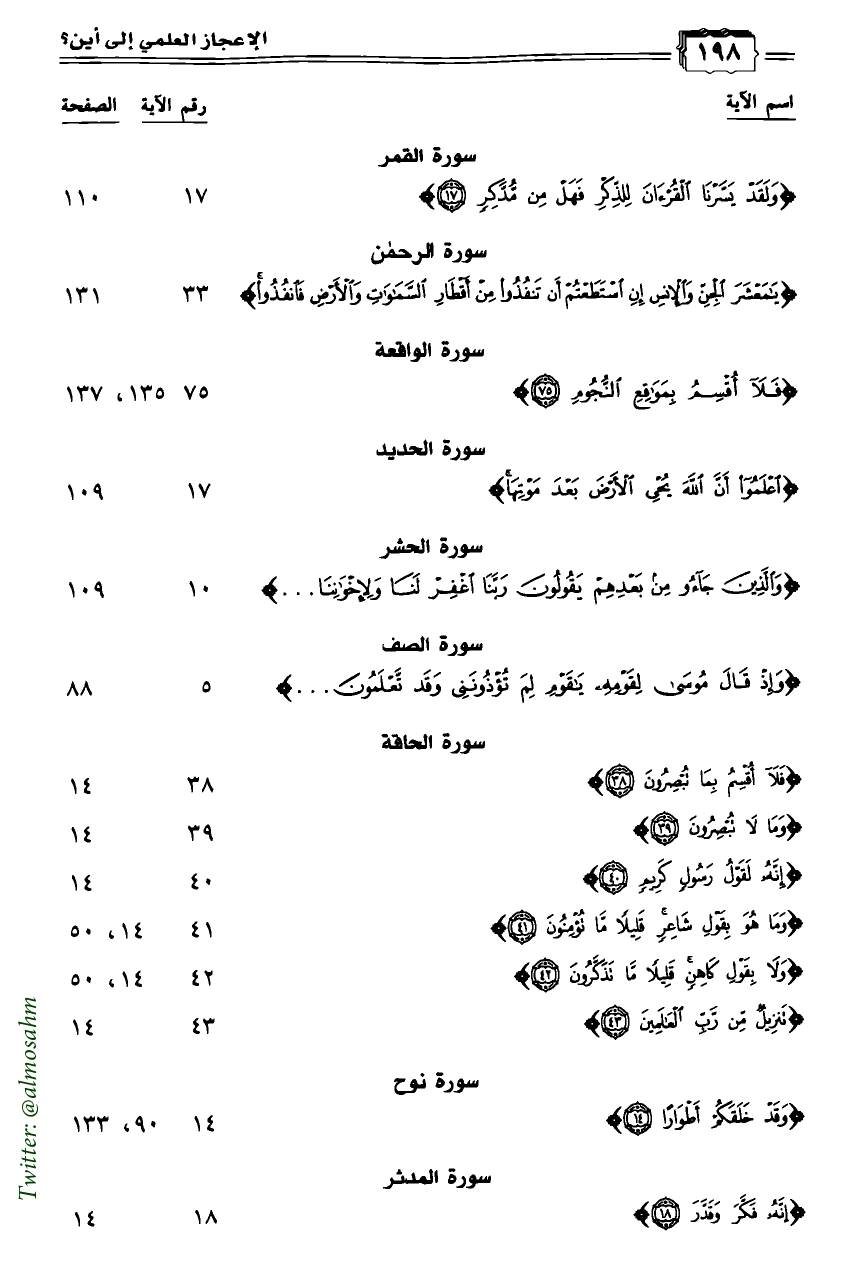 ١٩٨ الإعجاز العلمي إلى أين؟
اسم الآية رقم الآية الصفحة
سورة القمر
﴿وَلَقَدْ يَسَّرْنَا الْقُرْءَانَ لِلذِّكْرِ فَهَلْ مِن مُّدَّكِرٍ ١٧﴾ ١٧ ١١٠
سورة الرحمٰن
﴿يَٰمَعْشَرَ الْجِنِّ وَالْإِنسِ إِنِ اسْتَطَعْتُمْ أَن تَنفُذُوا مِنْ أَقْطَارِ السَّمَٰوَٰتِ وَالْأَرْضِ فَانفُذُوا﴾ ٣٣ ١٣١
سورة الواقعة
﴿فَلَآ أُقْسِمُ بِمَوَٰقِعِ النُّجُومِ ٧٥﴾ ٧٥ ١٣٥، ١٣٧
سورة الحديد
﴿اعْلَمُوٓا أَنَّ اللَّهَ يُحْيِ الْأَرْضَ بَعْدَ مَوْتِهَا﴾ ١٧ ١٠٩
سورة الحشر
﴿وَالَّذِينَ جَآءُو مِنۢ بَعْدِهِمْ يَقُولُونَ رَبَّنَا اغْفِرْ لَنَا وَلِإِخْوَٰنِنَا...﴾ ١٠ ١٠٩
سورة الصف
﴿وَإِذْ قَالَ مُوسَىٰ لِقَوْمِهِۦ يَٰقَوْمِ لِمَ تُؤْذُونَنِى وَقَد تَّعْلَمُونَ...﴾ ٥ ٨٨
سورة الحاقة
﴿فَلَآ أُقْسِمُ بِمَا تُبْصِرُونَ ٣٨﴾ ٣٨ ١٤
﴿وَمَا لَا تُبْصِرُونَ ٣٩﴾ ٣٩ ١٤
﴿إِنَّهُۥ لَقَوْلُ رَسُولٍ كَرِيمٍ ٤٠﴾ ٤٠ ١٤
﴿وَمَا هُوَ بِقَوْلِ شَاعِرٍ ۚ قَلِيلًا مَّا تُؤْمِنُونَ ٤١﴾ ٤١ ١٤، ٥٠
﴿وَلَا بِقَوْلِ كَاهِنٍ ۚ قَلِيلًا مَّا تَذَكَّرُونَ ٤٢﴾ ٤٢ ١٤، ٥٠
﴿تَنزِيلٌ مِّن رَّبِّ الْعَٰلَمِينَ ٤٣﴾ ٤٣ ١٤
سورة نوح
﴿وَقَدْ خَلَقَكُمْ أَطْوَارًا ١٤﴾ ١٤ ٩٠، ١٣٣
سورة المدثر
﴿إِنَّهُۥ فَكَّرَ وَقَدَّرَ ١٨﴾ ١٨ ١٤
Twitter: @almosahm